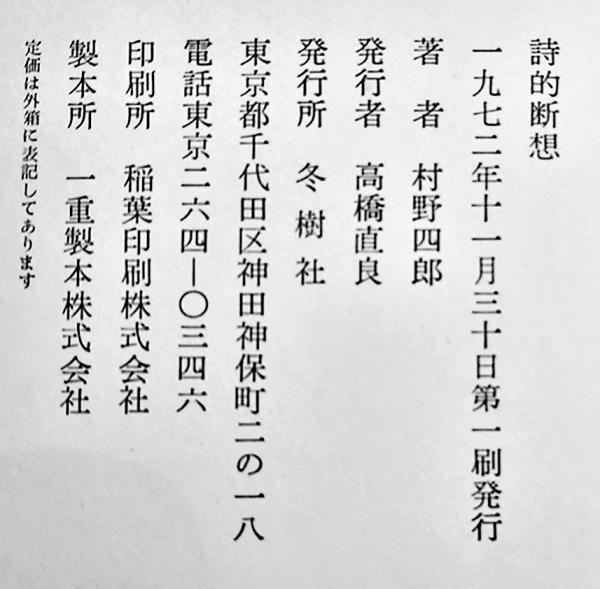 詩的断想
一九七二年十一月三十日第一刷発行
著者 村野四郎
発行者 高橋直良
発行所 冬樹社
東京都千代田区神田神保町二の一八
電話東京二六四―〇三四六
印刷所 稲葉印刷株式会社
製本所 一重製本株式会社
定価は外箱に表記してあります